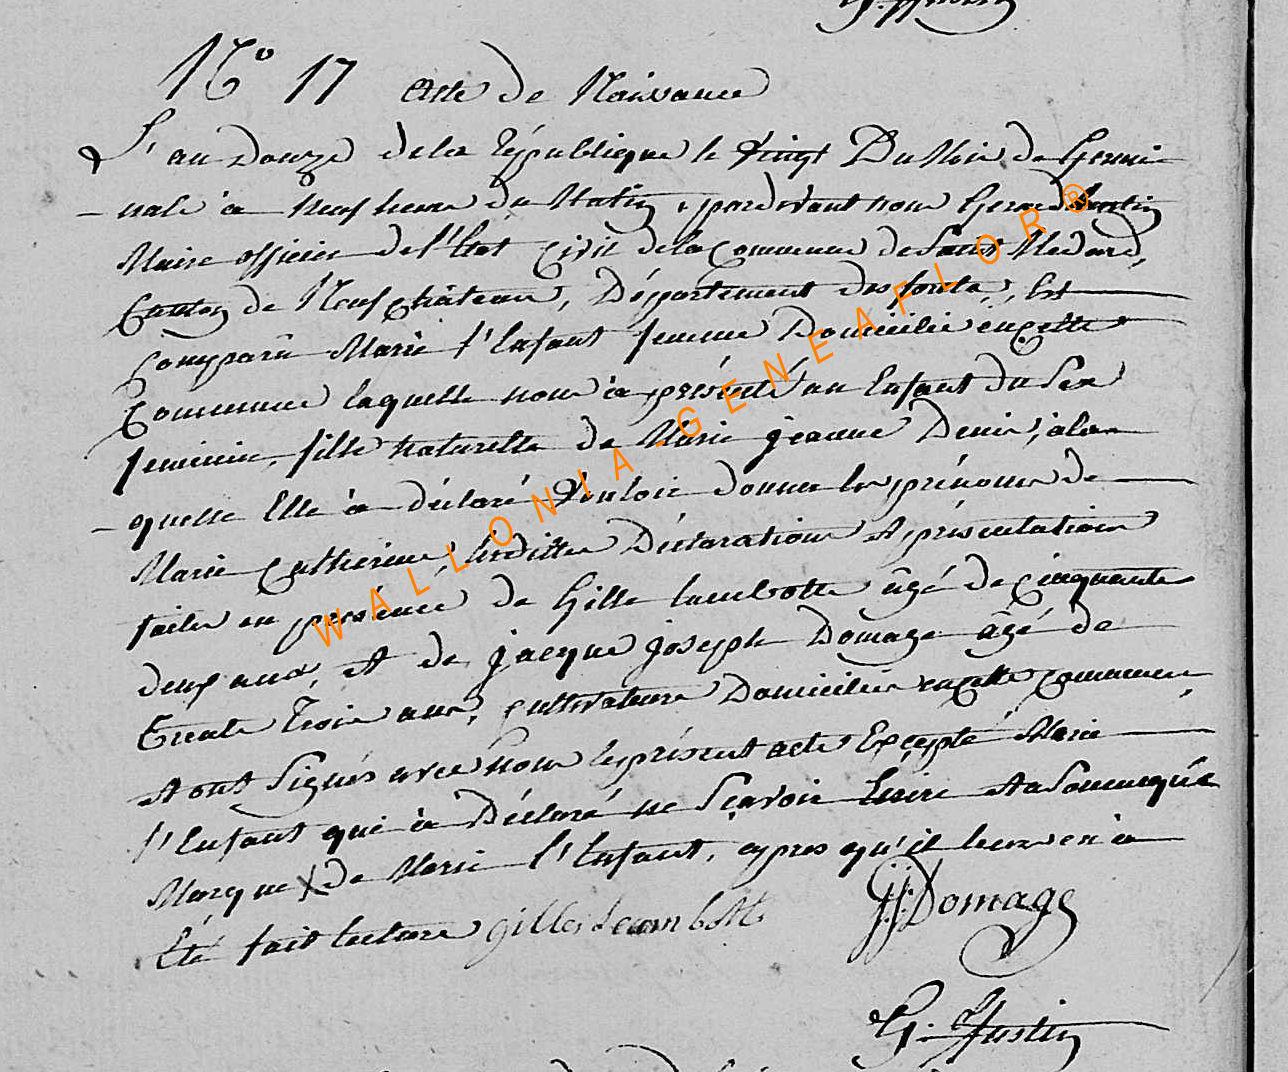 G. Justin
N.º 17 acte de Naissance
L'an Douze de la république le Vingt Du Mois de Germi
nale à neuf heure du Matin, pardevant nous Gerard Justin
Maire officier de l'Etat Civil de la Commune de Saint Medard,
Canton de Neufchâteau, Département des forêts, Est
Comparu Marie l'Enfant femme Domicilié en cette
Commune laquelle nous à présenté un Enfant du Sex
feminin, fille naturelle de Marie jeanne Denis, à la
quelle Elle à déclaré Vouloir donner les prénoms de
Marie Catherine, lesdittes Déclarations et présentations
faites en présence de Gille Lambotte âgé de Cinquante
deux ans, et de jacque joseph Domage âgé de
trente Trois ans, Cultivateurs Domiciliés en cette Commune,
et ont Signés avec nous le présent acte Excepté Marie
l'Enfant qui à Déclaré ne Sçavoir Ecrire et a Soumarqué
Marque X de Marie l'Enfant, apres qu'il leur en à
Eté fait lecture gilles Lambotte
J.J. Domage
G. Justin
WALLONIA - GENEAFLOR®